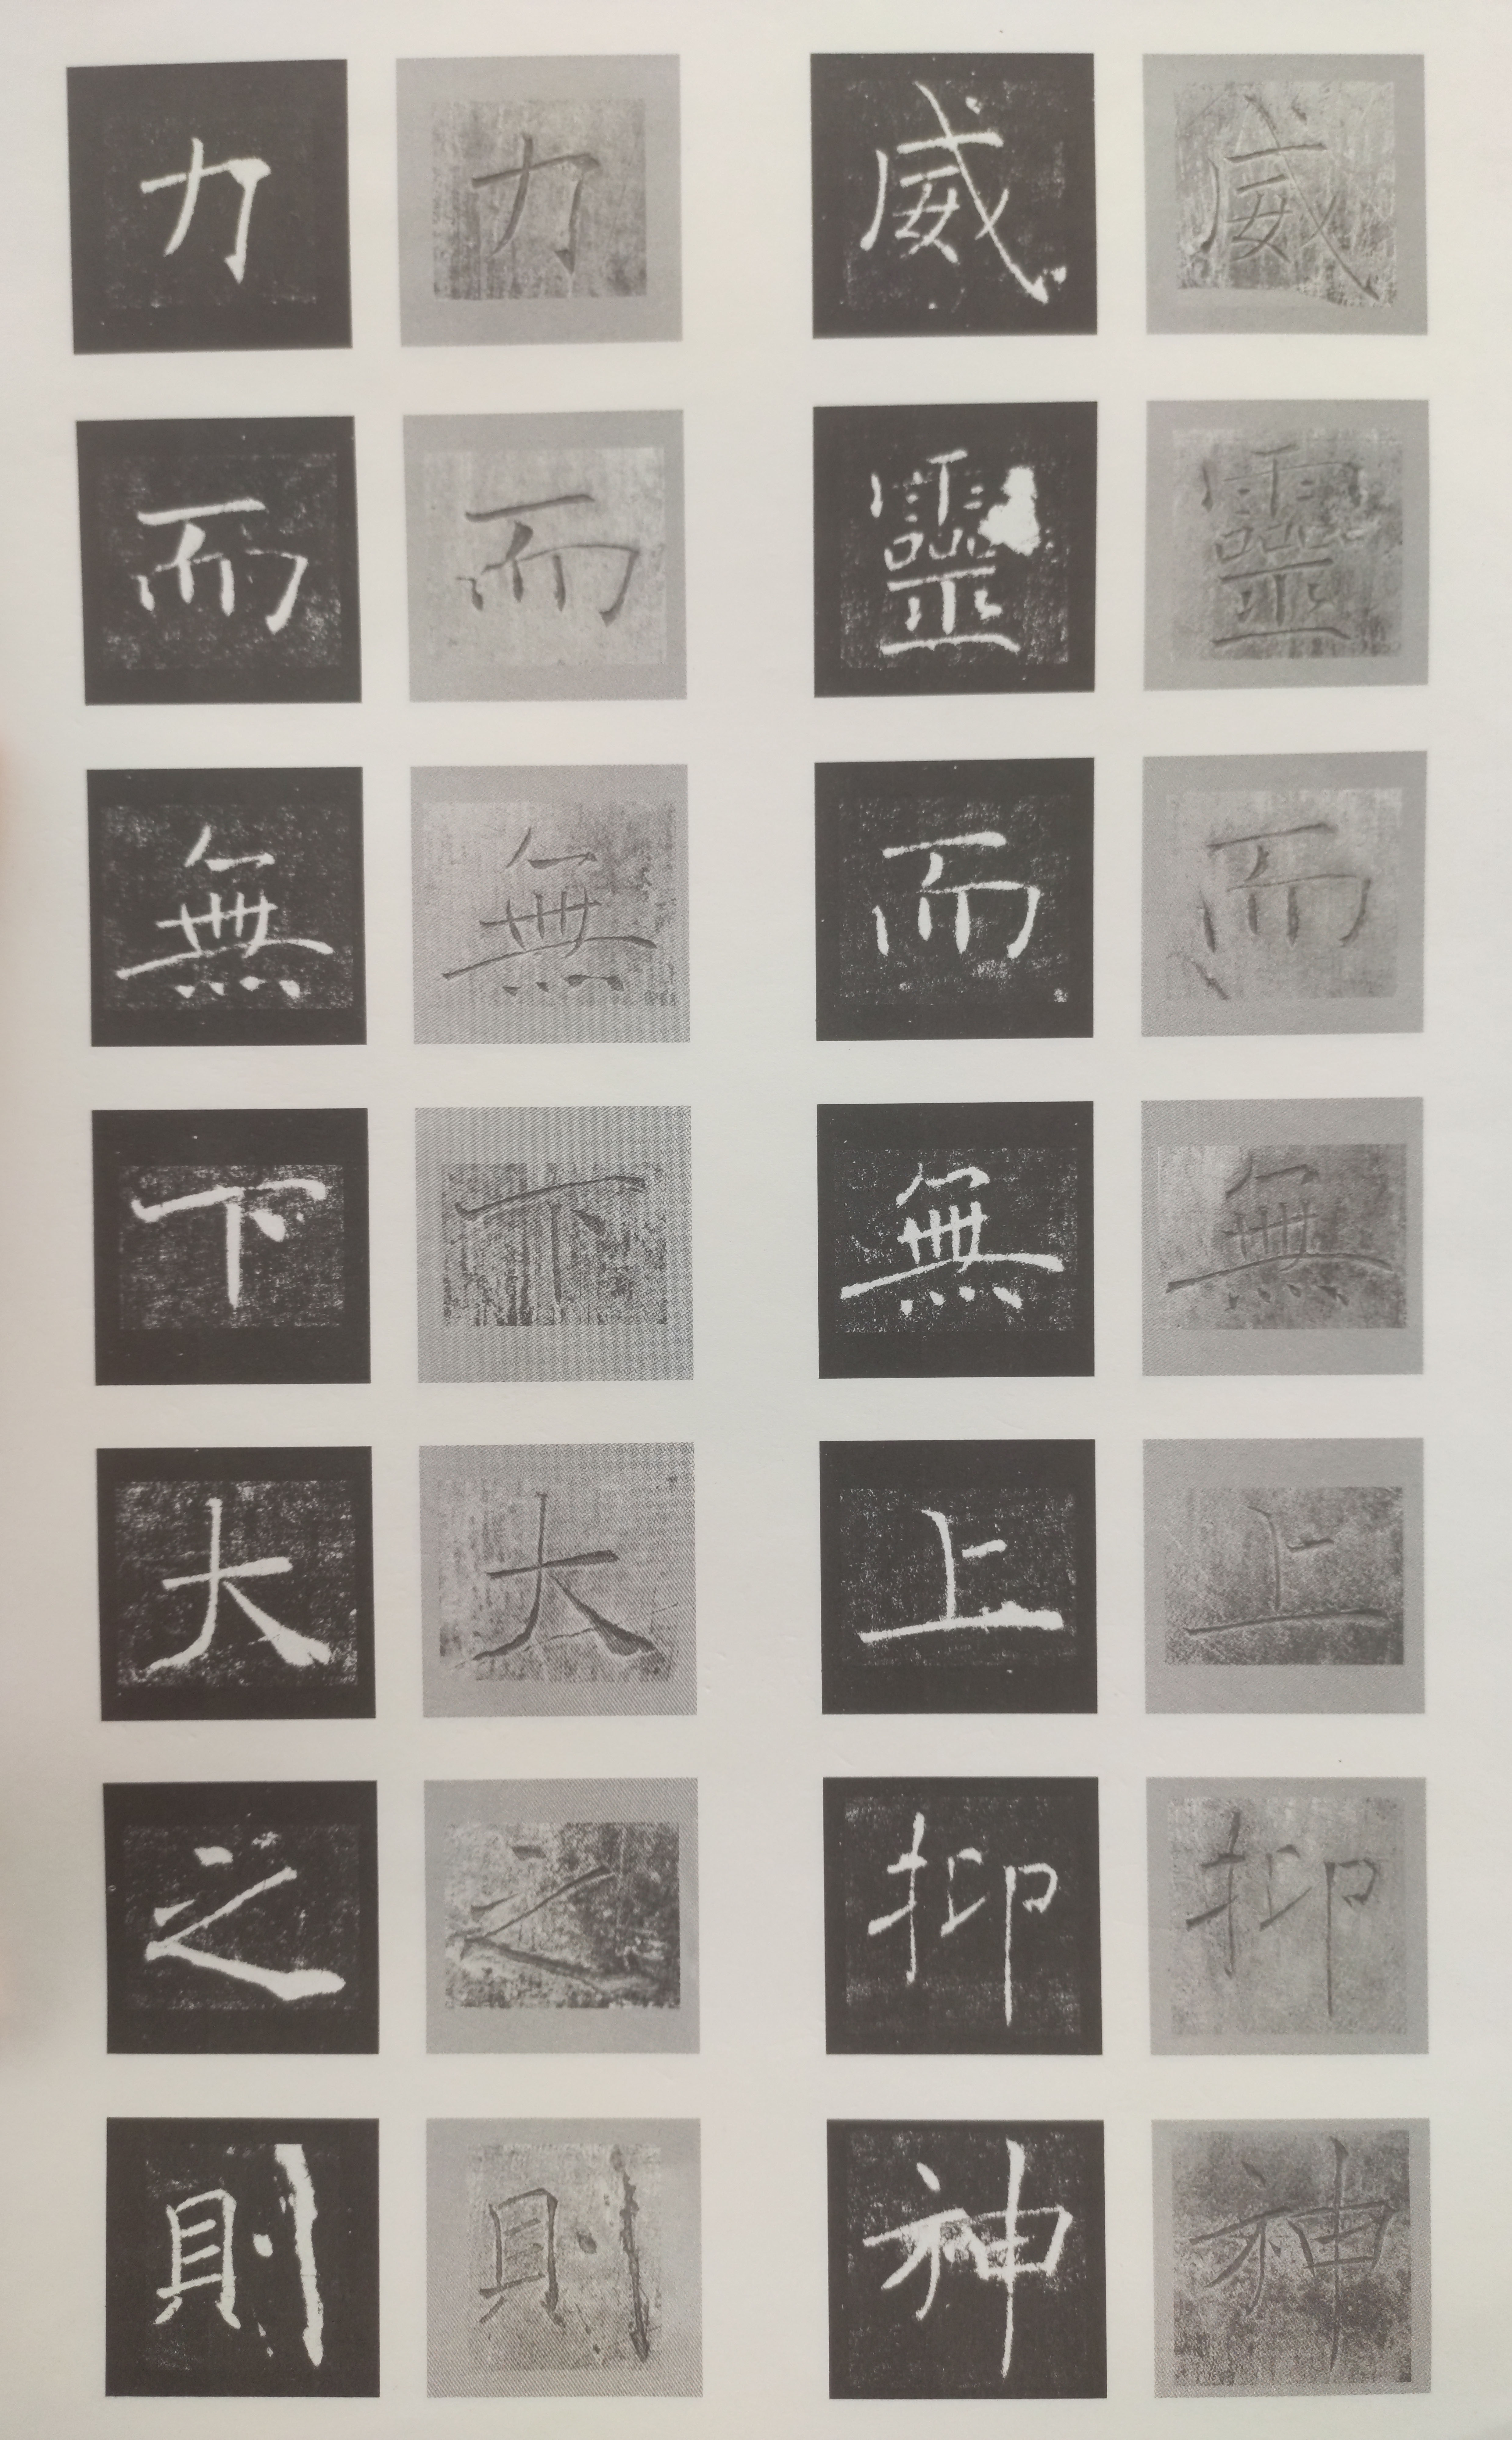 威靈而無上抑神
威靈而無上抑神
力而無下大之則
力而無下大之則